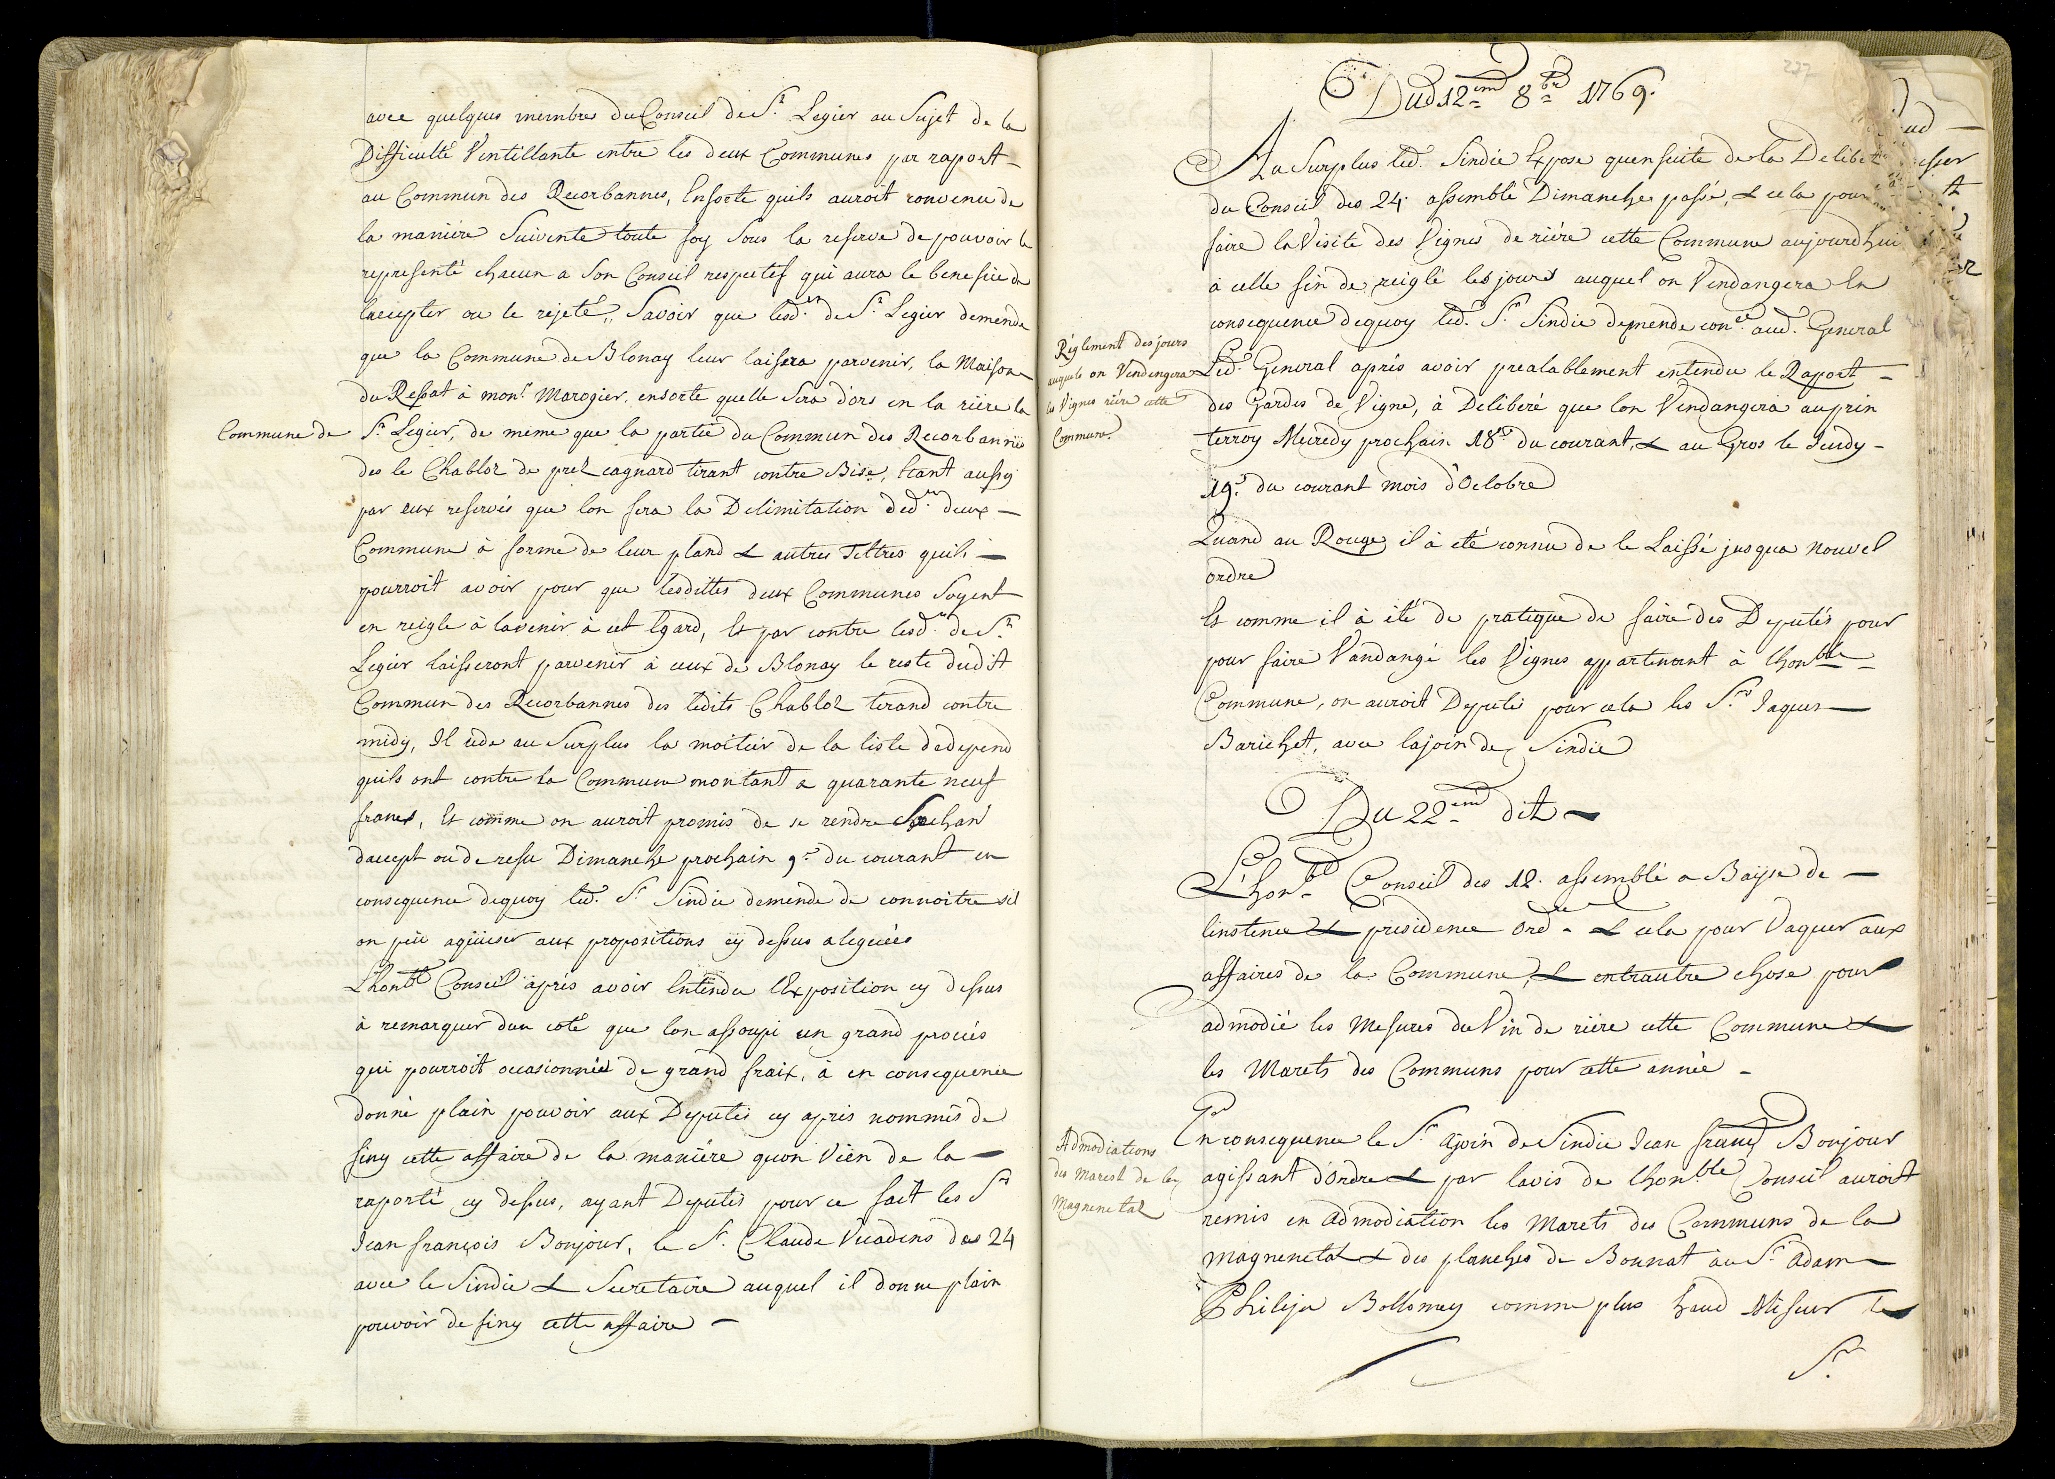 avec quelques membres du Conseil de St. Legier au Sujet de la
Difficulté Ventillante entre les deux Communes par raport
au Commun des Recorbannes, Ensorte quils auroit convenu de
la maniére Suivente toute foy Sous la reserve de pouvoir le
representé chacun a Son Conseil respectef qui aura le benefice de
laccepter ou le rejeté,, Savoir que lesd.rs de St. Legier demende
que la Commune de Blonay leur laissra parvenir, la Maison
du Repat à mons.r Marogier, ensorte quelle Sera d'ors en la riére la
Commune de St. Legier, de meme que la partie du Commun des Recorbannes
des le Chabloz de prez cagnard tirant contre Bise, Etant aussy
par eux reservés que lon fera la Delimitation ded.tes deux
Commune à forme de leur pland & autres Tiltres quils
pourroit avoir pour que lesdittes deux Communes Soyent
en reigle à lavenir à cet Egard, Et par contre lesd.rs de St.
Legier laisseront parvenir à ceux de Blonay le reste dudit
Commun des Recorbannes des ledits Chabloz tirand contre
midy, Il cede au Surplus la moitier de la liste dedepend
quils ont contre la Commune montant a quarante neuf
francs, Et comme on auroit promis de se rendre
daccept ou de refu Dimanche prochain 9e du courant en
consequence dequoy led. Sr. Sindic demende de connoitre sil
on peu aquieser aux propositions cy dessus aleguées
Lhonble Conseil âprés avoir Entendu lExposition cy dessus
à remarquer dun coté que lon assoupi un grand procés
qui pourroit occasionnéé de grand fraix, à en consequence
donné plain pouvoir aux Deputés cy aprés nommés de
finy cette affaire de la maniére quon Vien de la
raporté cy dessus, ayant Deputés pour ce fait les Srs
Jean françois Bonjour, le Sr. Claude Vuadens des 24
avec le Sindic & Secretaire auquel il donne plain
pouvoir de finy cette affaire
227
Dud 12eme 8bre 1769.
Au Surplus led. Sindic Expose quensuite de la
du Conseil des 24 assemblé Dimanche passé, & cela pour
faire la Visite des Vignes de riére cette Commune aujourdhui
à celle fin de reiglé les jours auquel on Vendangera En
consequence dequoy led. Sr. Sindic demende con.ce aud. General
Réglement des jours
auquels on Vendengera
les Vignes riére cette
Commune.
Led. General aprés avoir prealablement entendu le Raport
des Gardes de Vigne, à Deliberé que lon Vendangera au prin
terroy Mecredy prochain 18e du courant, & au Gros le Jeudy
19e. du courant mois d'Octobre
Quand au Rouge il à eté connu de le Laissé jusqua nouvel
ordre
Et comme il à été de pratique de faire des Deputés pour
pour faire Vandangé les Vignes appartenant à lhonble
Commune, on auroit Deputé pour cela les Srs. Jaques
Barichet, avec lajoin de Sindic
Du 22eme dit
L'honble Conseil des 12. assemblé a Bayse de
linstence & presidence ord.re & cela pour Vaquer aux
affaires de la Commune, & entrautre chose pour
admodié les Mesures du Vin de riére cette Commune &
les Marets des Communs pour cette année
Admodiations
des Marest de la
Magnenetaz
En consequence le Sr. Ajoin de Sindic Jean franç. Bonjour
agissant d'Ordre & par lavis de lhonble Conseil auroit
remis en Admodiation les Marets des Communs de la
Magnenetaz & des planches de Bounat au Sr. Adam
Philipe Bollomey comme plus haud Miseur les
Sr.